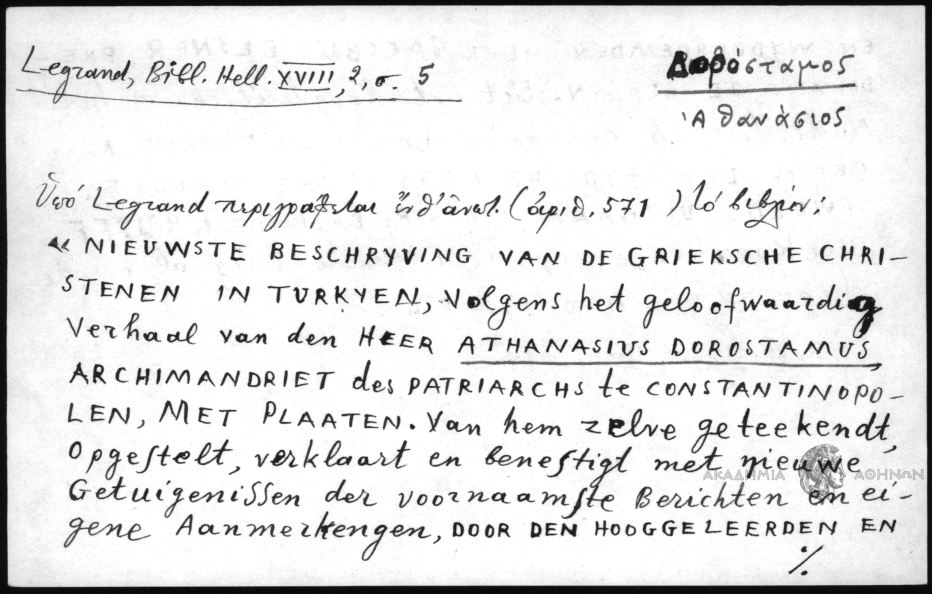 Legrand, Bibl. Hell. XVIII, 2, σ. 5
Δορόσταμος
Ἀθανάσιος
Ὑπό Legrand περιγράφεται ἐνθ' ἀνωτ. (ἀριθ. 571) τό βιβλίον:
« NIEUWSTE BESCHRYVING VAN DE GRIEKSCHE CHRI-
STENEN IN TURKYEN, volgens het geloofwaardig
verhaal van den HEER ATHANASIUS DOROSTAMUS,
ARCHIMANDRIET des PATRIARCHS te CONSTANTINOPO-
LEN, MET PLAATEN. Van hem zelve geteekendt,
Opgestelt, verklaart en benestigt met nieuwe
Getuigenissen der voornaamste Berichten en ei-
gene Aanmerkengen, DOOR DEN HOOGGELEERDEN EN
ΑΚΑΔΗΜΙΑ ΑΘΗΝΩΝ
%.